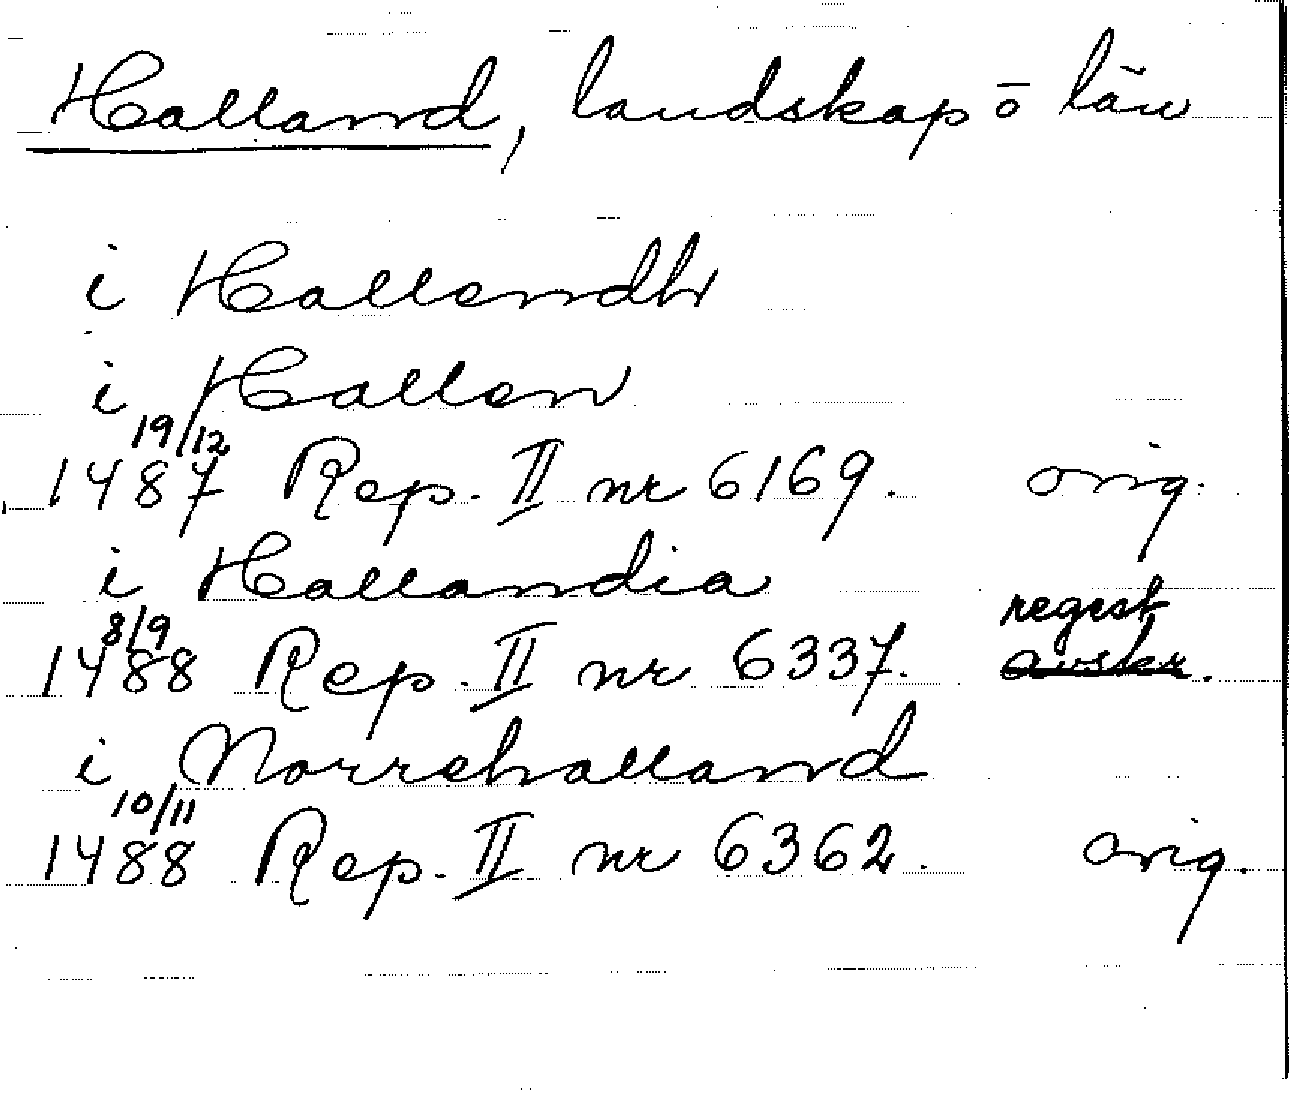 Halland, landskap o län
i Hallendh
i Hallen
19/12
1487 Rep. II nr 6169. orig.
i Hallandia
8/9 regest
1488 Rep. II nr 6337. avskr.
i Norrehalland
10/11
1488 Rep. II nr 6362. orig.